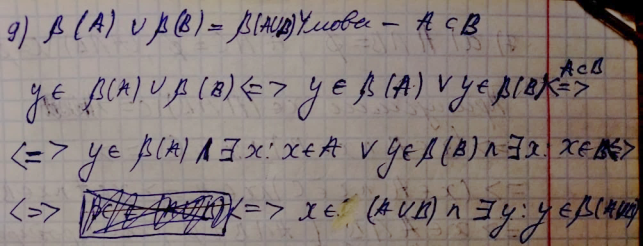 д) β(A) ∪ β(B) = β(A∪B) Умова – A ⊂ B
y ∈ β(A) ∪ β(B) <=> y ∈ β(A) ∨ y ∈ β(B) <=> A⊂B
<=> y ∈ β(A) ∧ ∃ x: x ∈ A ∨ y ∈ β(B) ∧ ∃ x: x ∈ B <=>
<=> <=> x ∈ (A∪B) ∧ ∃ y: y ∈ β(A∪B)